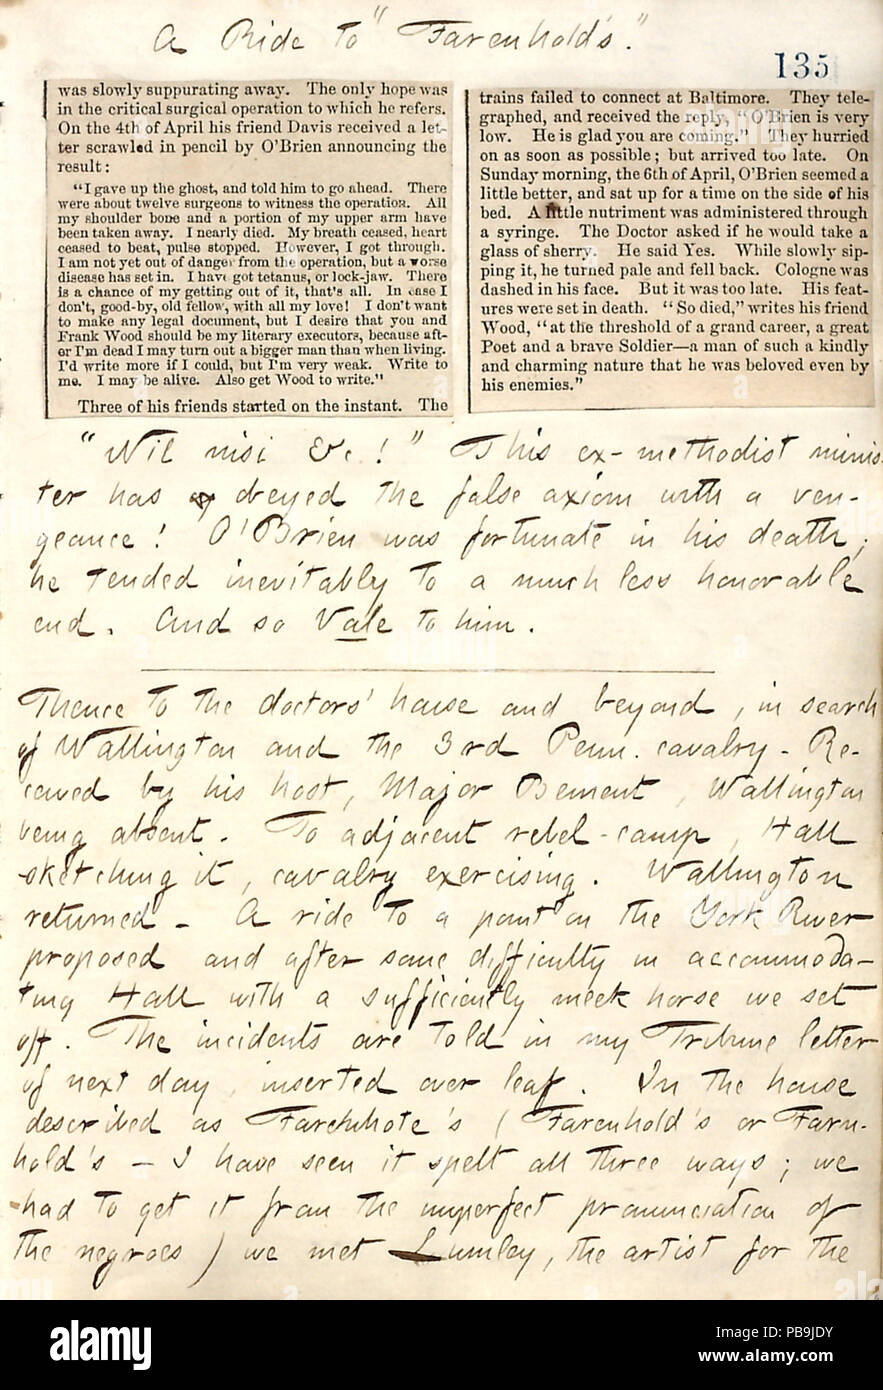 A Ride to "Farenhold's."
135
was slowly suppurating away. The only hope was
in the critical surgical operation to which he refers.
On the 4th of April his friend Davis received a let-
ter scrawled in pencil by O'Brien announcing the
result:
"I gave up the ghost, and told him to go ahead. There
were about twelve surgeons to witness the operation. All
my shoulder bone and a portion of my upper arm have
been taken away. I nearly died. My breath ceased, heart
ceased to beat, pulse stopped. However, I got through.
I am not yet out of danger from the operation, but a worse
disease has set in. I have got tetanus, or lock-jaw. There
is a chance of my getting out of it, that's all. In case I
don't, good-by, old fellow, with all my love! I don't want
to make any legal document, but I desire that you and
Frank Wood should be my literary executors, because aft-
er I'm dead I may turn out a bigger man than when living.
I'd write more if I could, but I'm very weak. Write to
me. I may be alive. Also get Wood to write."
Three of his friends started on the instant. The
trains failed to connect at Baltimore. They tele-
graphed, and received the reply, "O'Brien is very
low. He is glad you are coming." They hurried
on as soon as possible; but arrived too late. On
Sunday morning, the 6th of April, O'Brien seemed a
little better, and sat up for a time on the side of his
bed. A little nutriment was administered through
a syringe. The Doctor asked if he would take a
glass of sherry. He said Yes. While slowly sip-
ping it, he turned pale and fell back. Cologne was
dashed in his face. But it was too late. His feat-
ures were set in death. "So died," writes his friend
Wood, "at the threshold of a grand career, a great
Poet and a brave Soldier—a man of such a kindly
and charming nature that he was beloved even by
his enemies."
"Nil nisi &c!" This ex-methodist minis-
ter has obeyed the false axiom with a ven-
geance! O'Brien was fortunate in his death;
he tended inevitably to a much less honorable
end. And so Vale to him.
Thence to the doctors' house and beyond, in search
of Wallington and the 3rd Penn. cavalry. Re-
ceived by his host, Major Bement, Wallington
being absent. To adjacent rebel-camp, Hall
sketching it, cavalry exercising. Wallington
returned. A ride to a point on the York River
proposed and after some difficulty in accommoda-
ting Hall with a sufficiently meek horse we set
off. The incidents are told in my Tribune letter
of next day, inserted over leaf. In the house
described as Farenhote's (Farenhold's or Farn-
hold's — I have seen it spelt all three ways; we
had to get it from the imperfect pronunciation of
the negroes) we met Lumley, the artist for the
alamy
Image ID: PB9JDY
www.alamy.com